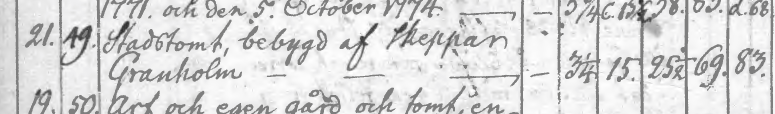 1771. och den 5. October 1774. — - 3/4 C. 15 58. 65. d. 68
21. 49. Stadstomt, bebygd af Skeppar
Granholm — — — - 3/4 15. 25½ 69. 83.
19. 50. Arf och egen gård och tomt, en-